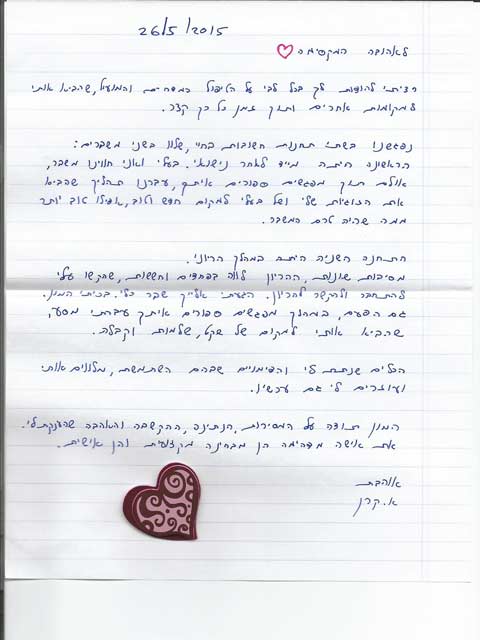 26/5/2015
לאהובה המקסימה
רציתי להודות לך בכל לבי על הטיפול המדהים והמועיל, שהביא אותי
למקומות אחרים ותוך זמן כל כך קצר.
נפגשנו בשתי תחנות חשובות בחיי, שלוו בשני משברים:
הראשונה היתה מייד לאחר נישואיי. בעלי ואני חווינו משבר,
אולם תוך מפגשים ספורים איתך, עברנו תהליך שהביא
את הזוגיות שלי ושל בעלי למקום חדש וטוב, אפילו טוב יותר
ממה שהיה טרם המשבר.
התחנה השניה היתה במהלך הריוני.
מסיבות שונות, ההריון לווה בפחדים וחששות, שהקשו עליי
להתחבר ולהקשר להריון. הגעתי אלייך שבר כלי. בכיתי המון.
גם הפעם, במהלך מפגשים ספורים איתך עברתי מסע,
שהביא אותי למקום של שקט, שלמות וקבלה.
הכלים שנתת לי והדימויים שבהם השתמשת, מלווים אותי
ועוזרים לי גם עכשיו.
המון תודה על המסירות, הנתינה, ההקשבה והאהבה שהענקת לי.
את אישה מדהימה הן מבחינה מקצועית והן אישית.
אוהבת
א. קרן